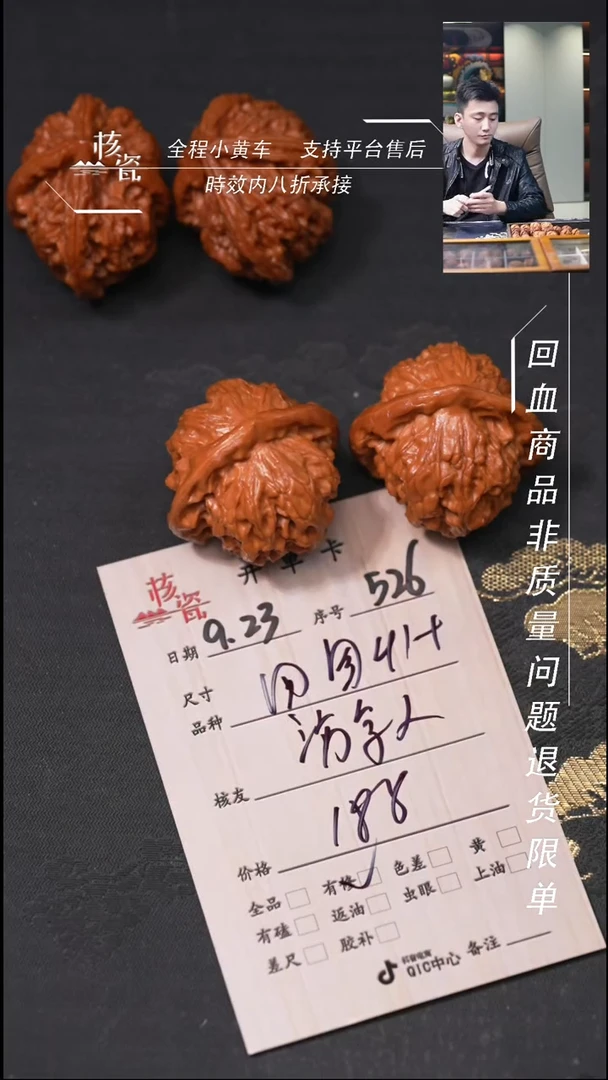 核瓷
全程小黄车 支持平台售后
時效内八折承接
回血商品非质量问题退货限单
开单卡
核瓷
日期 9.23 序号 526
尺寸
品种
核友
价格 188
全品 有修 色差 黄
有磕 返油 虫眼 上油
差尺 胶补
抖音电商
QIC中心 备注